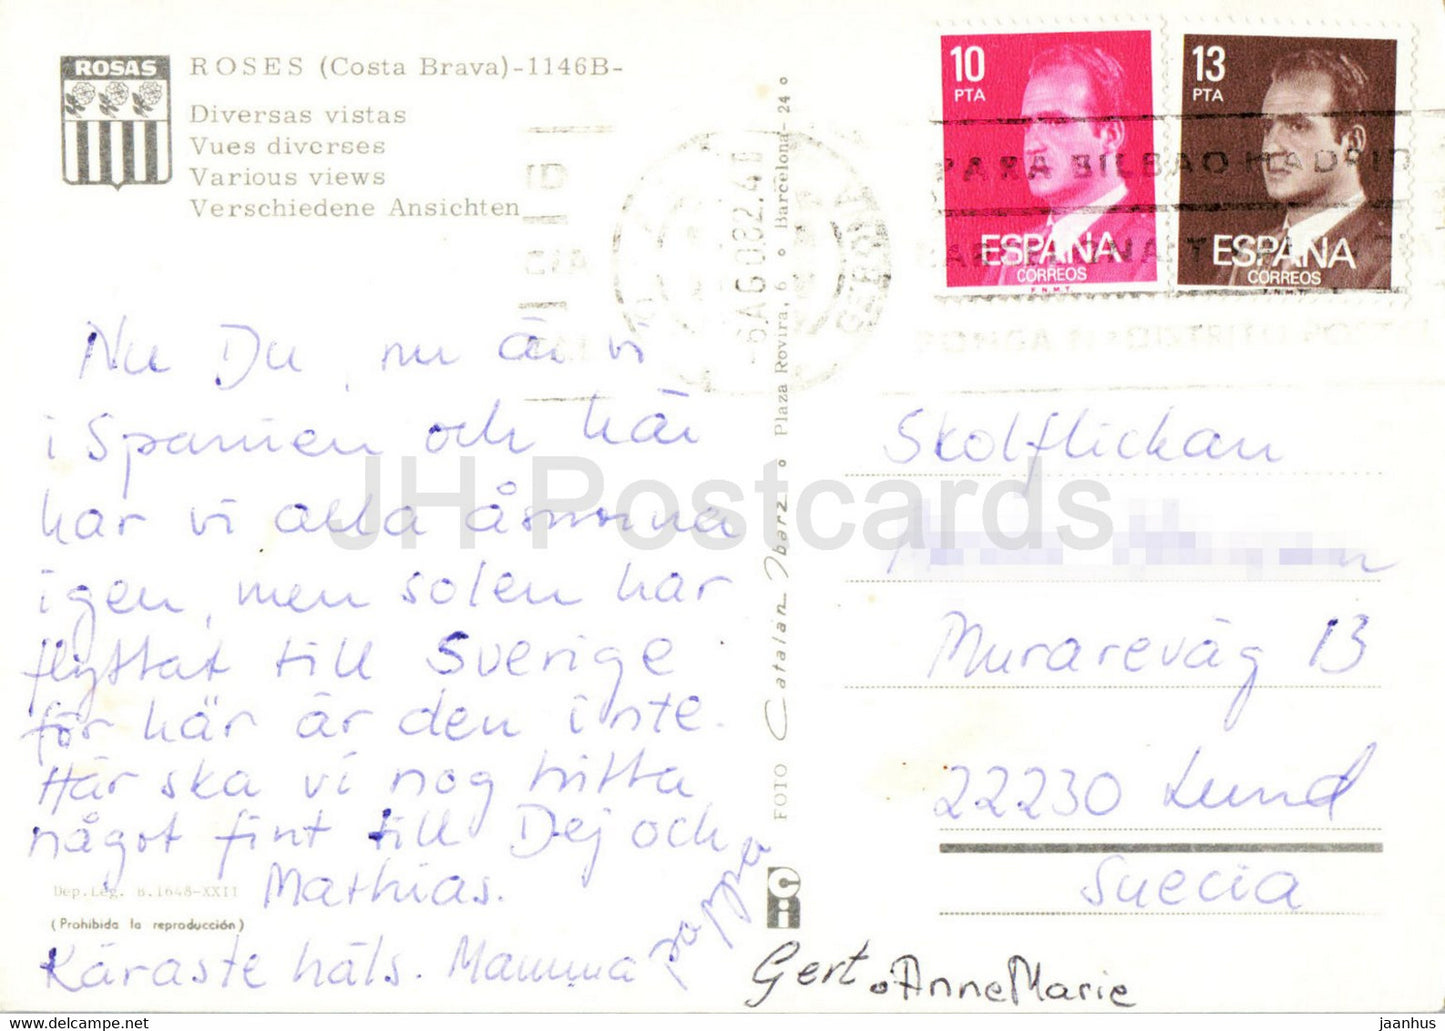 ROSAS
ROSES (Costa Brava)-1146B-
Diversas vistas
Vues diverses
Various views
Verschiedene Ansichten
10
PTA
ESPAÑA
CORREOS
F.N.M.T.
13
PTA
ESPAÑA
CORREOS
F.N.M.T.
PARA BILBAO MADRID
BARCELONA
PONGA Nº DISTRITO POSTAL
Nu Du, nu är vi
i Spanien och här
har vi alla åsnorna
igen, men solen har
flyttat till Sverige
för här är den inte.
Här ska vi nog hitta
något fint till Dej och
Mathias.
Dep.Leg. B.1648-XXII
(Prohibida la reproducción)
Käraste häls. Mamma pappa
FOTO Catalán Ibarz o Plaza Rovira, 6 o Barcelona-24 o
Ci
Skolflickan
Murareväg 13
22230 Lund
Suecia
Gert o AnneMarie
JH Postcards
www.delcampe.net
jaanhus